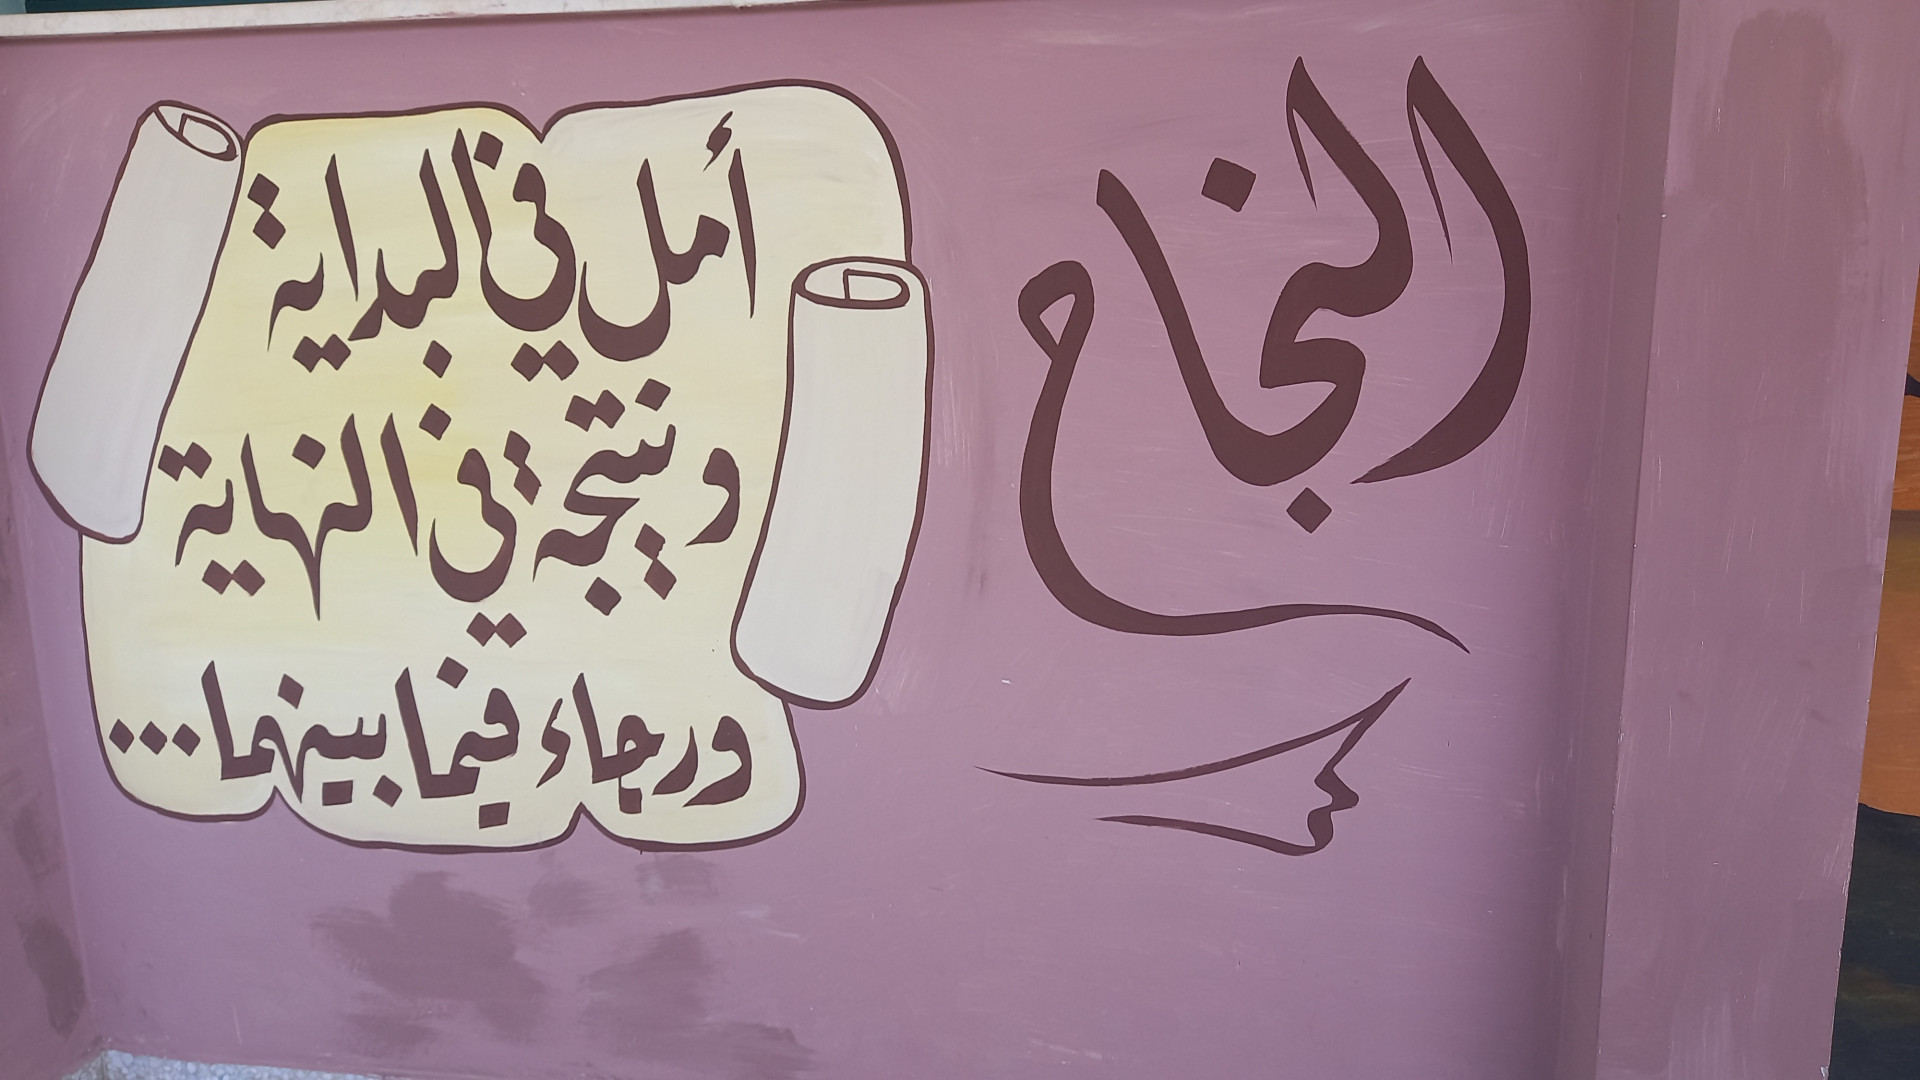 النجاح
أمل في البداية
ونتيجة في النهاية
ورجاء فيما بينهما...